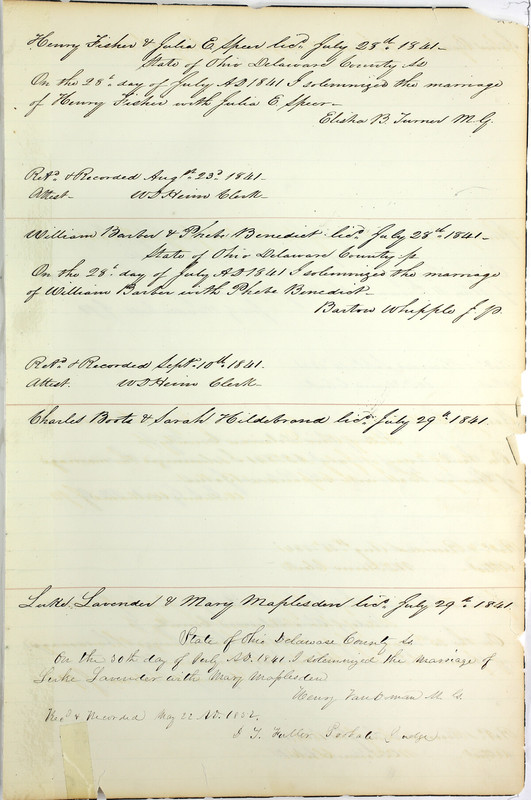 Henry Fisher & Julia E Speer licd. July 28th 1841-
State of Ohio Delaware County Ss
On the 28th day of July AD 1841 I solemnized the marriage
of Henry Fisher with Julia E Speer-
Elisha B. Turner M.G.
Retd. & Recorded Augst. 23d 1841-
Attest- W D Heim Clerk-
William Barber & Phebe Benedict licd. July 28th 1841-
State of Ohio Delaware County ss
On the 28th day of July AD 1841 I solemnized the marriage
of William Barber with Phebe Benedict-
Barton Whipple J P.
Retd. & Recorded Sept. 10th 1841.
Attest. W D Heim Clerk-
Charles Boots & Sarah Hildebrand licd. July 29th 1841.
Luke Lavender & Mary Maplesden licd. July 29th 1841.
State of Ohio Delaware County Ss
On the 30th day of July A.D. 1841 I solemnized the marriage of
Luke Lavender with Mary Maplesden
Henry VanDeman M. G.
Recd & Recorded May 22 AD.
Fuller Probate Judge